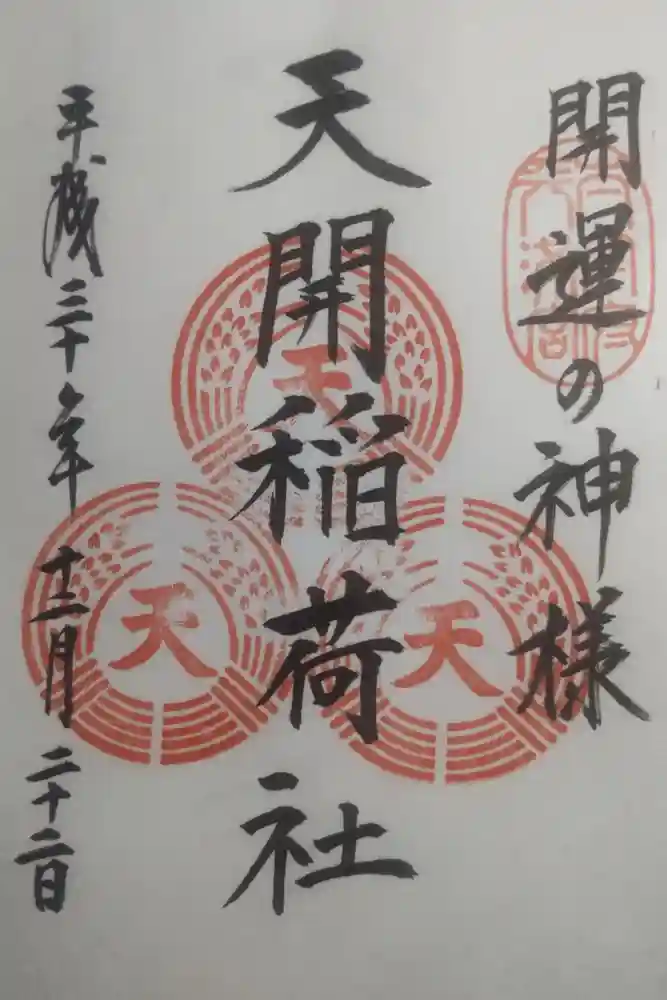 開運の神様
天開稲荷社
平成三十年十二月二十二日
天
天
天